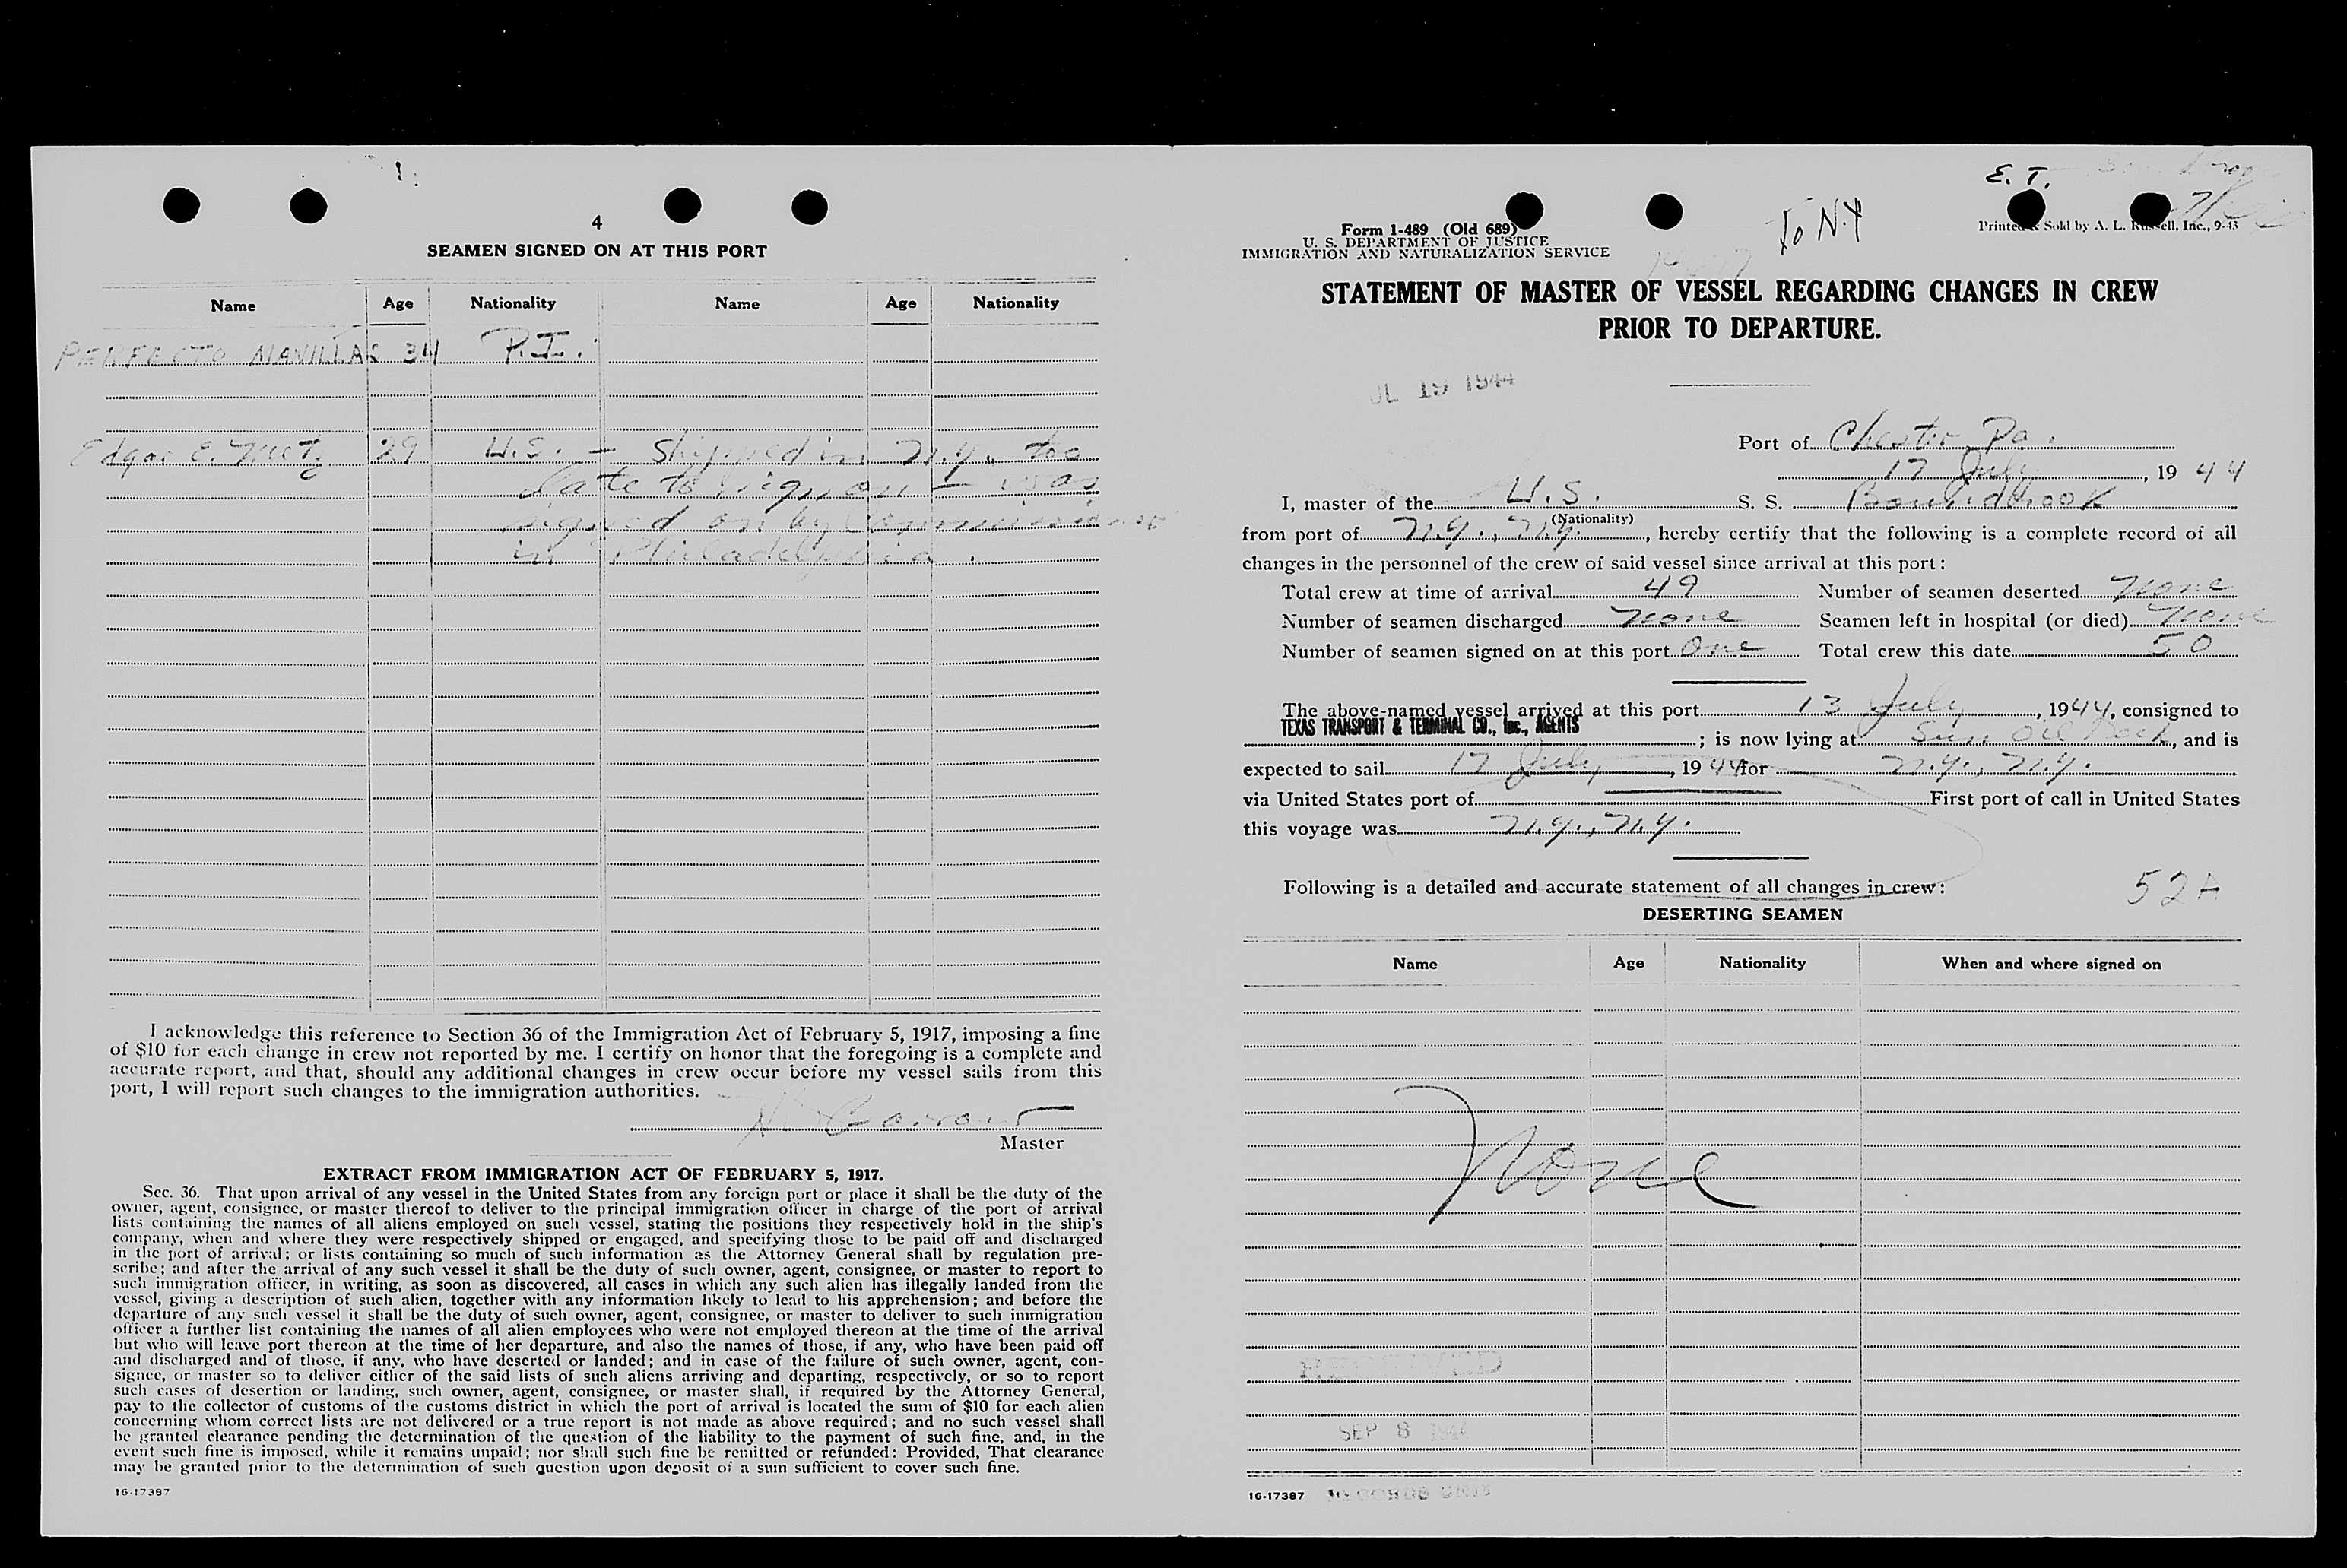 4
SEAMEN SIGNED ON AT THIS PORT
Name Age Nationality Name Age Nationality
PERFECTO 34 P.I.
Edgar E. Metz 29 U.S. — Shipped in N.Y. too
late to sign on — was
signed on by Commissioner
in Philadelphia.
I acknowledge this reference to Section 36 of the Immigration Act of February 5, 1917, imposing a fine
of $10 for each change in crew not reported by me. I certify on honor that the foregoing is a complete and
accurate report, and that, should any additional changes in crew occur before my vessel sails from this
port, I will report such changes to the immigration authorities.
Master
EXTRACT FROM IMMIGRATION ACT OF FEBRUARY 5, 1917.
Sec. 36. That upon arrival of any vessel in the United States from any foreign port or place it shall be the duty of the
owner, agent, consignee, or master thereof to deliver to the principal immigration officer in charge of the port of arrival
lists containing the names of all aliens employed on such vessel, stating the positions they respectively hold in the ship's
company, when and where they were respectively shipped or engaged, and specifying those to be paid off and discharged
in the port of arrival; or lists containing so much of such information as the Attorney General shall by regulation pre-
scribe; and after the arrival of any such vessel it shall be the duty of such owner, agent, consignee, or master to report to
such immigration officer, in writing, as soon as discovered, all cases in which any such alien has illegally landed from the
vessel, giving a description of such alien, together with any information likely to lead to his apprehension; and before the
departure of any such vessel it shall be the duty of such owner, agent, consignee, or master to deliver to such immigration
officer a further list containing the names of all alien employees who were not employed thereon at the time of the arrival
but who will leave port thereon at the time of her departure, and also the names of those, if any, who have been paid off
and discharged and of those, if any, who have deserted or landed; and in case of the failure of such owner, agent, con-
signee, or master so to deliver either of the said lists of such aliens arriving and departing, respectively, or so to report
such cases of desertion or landing, such owner, agent, consignee, or master shall, if required by the Attorney General,
pay to the collector of customs of the customs district in which the port of arrival is located the sum of $10 for each alien
concerning whom correct lists are not delivered or a true report is not made as above required; and no such vessel shall
be granted clearance pending the determination of the question of the liability to the payment of such fine, and, in the
event such fine is imposed, while it remains unpaid; nor shall such fine be remitted or refunded: Provided, That clearance
may be granted prior to the determination of such question upon deposit of a sum sufficient to cover such fine.
16-17387
E. T.
Form 1-489 (Old 689)
U. S. DEPARTMENT OF JUSTICE
IMMIGRATION AND NATURALIZATION SERVICE
To N.Y
Printed & Sold by A. L. Russell, Inc., 9-43
STATEMENT OF MASTER OF VESSEL REGARDING CHANGES IN CREW
PRIOR TO DEPARTURE.
JUL 19 1944
Port of Chester, Pa.
17 July, 19 44
I, master of the U.S. S. S. Boundbrook
(Nationality)
from port of N.Y., N.Y., hereby certify that the following is a complete record of all
changes in the personnel of the crew of said vessel since arrival at this port:
Total crew at time of arrival 49 Number of seamen deserted None
Number of seamen discharged None Seamen left in hospital (or died) None
Number of seamen signed on at this port One Total crew this date 50
The above-named vessel arrived at this port 13 July, 1944, consigned to
TEXAS TRANSPORT & TERMINAL CO., Inc., AGENTS
; is now lying at Sun Oil Dock, and is
expected to sail 17 July, 19 44 for N.Y., N.Y.
via United States port of First port of call in United States
this voyage was N.Y., N.Y.
Following is a detailed and accurate statement of all changes in crew:
52A
DESERTING SEAMEN
Name Age Nationality When and where signed on
None
RECEIVED
SEP 8 1944
16-17387 RECORDS UNIT